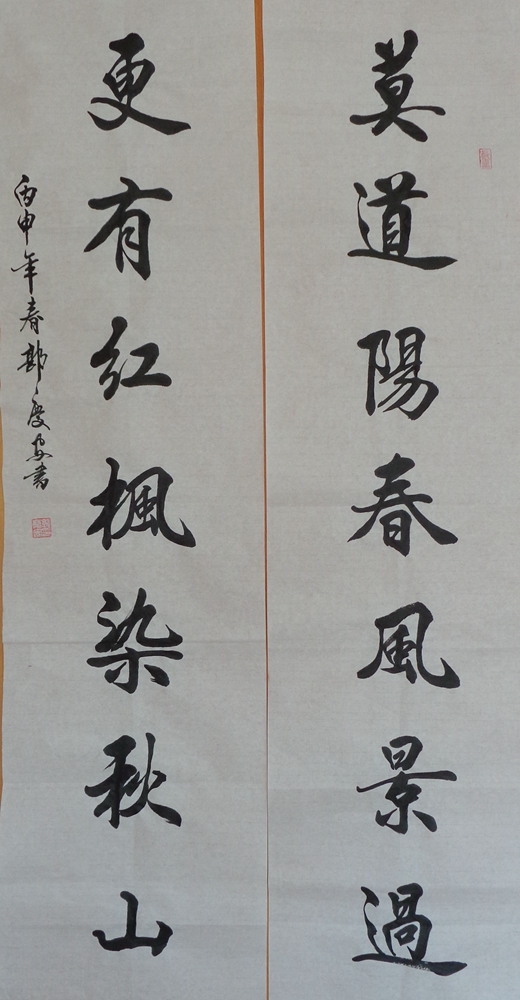 莫道陽春風景過
更有红楓染秋山
丙申年春鄭慶安書